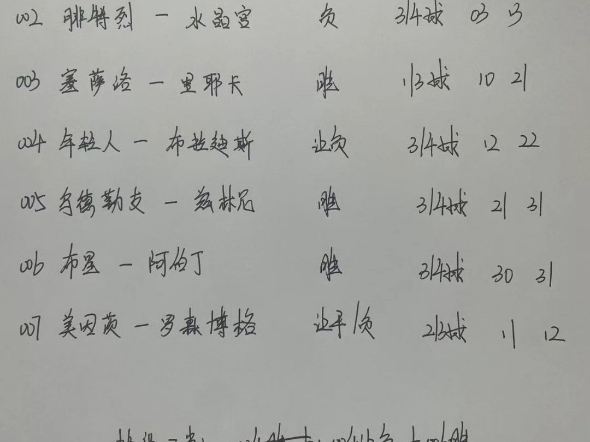 002 腓特烈 — 水晶宫 负 3/4球 03 13
003 塞萨洛 — 里耶卡 胜 1/3球 10 21
004 年轻人 — 布拉迪斯 让负 3/4球 12 22
005 乌德勒支 — 兹林尼 胜 3/4球 21 31
006 布里 — 阿伯丁 胜 3/4球 30 31
007 美因茨 — 罗森博格 让平/负 2/3球 11 12